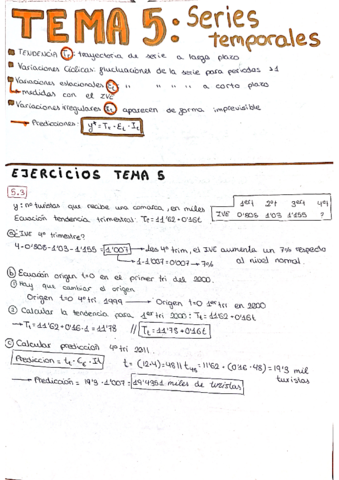 TEMA 5: Series temporales
TENDENCIA (Tt): trayectoria de serie a largo plazo
Variaciones Cíclicas: fluctuaciones de la serie para periodos >1
Variaciones estacionales (Et) " " " " a corto plazo
medidas con el IVE
Variaciones irregulares (It) aparecen de forma imprevisible
→ Predicciones: y* = Tt · Et · It
EJERCICIOS TEMA 5
5.3
y: nº turistas que recibe una comarca, en miles
Ecuación tendencia trimestral: Tt = 11'62 + 0'16t
1ertr 2ºtr 3ertr 4ºtr
IVE 0'808 1'03 1'155 ?
a) IVE 4º trimestre?
4 - 0'808 - 1'03 - 1'155 = 1'007 → las 4º trim, el IVE aumenta un 7% respecto
→ 1 - 1'007 = 0'007 → 7% al nivel normal.
b) Ecuación origen t=0 en el primer tri del 2000.
1) Hay que cambiar el origen
Origen t=0 4º tri. 1999 → Origen t=0 1er tri en 2000
2) Calcular la tendencia para 1er tri 2000: Tt = 11'62 + 0'16t
→ Tt = 11'62 + 0'16 · 1 = 11'78 // Tt = 11'78 + 0'16t
c) Calcular predicción 4º tri 2011.
Prediccion = tt · Et · It t = (12·4) = 48 // t48 = 11'62 + (0'16 · 48) = 19'3 mil
turistas
→ Predicción = 19'3 · 1'007 = 19'4351 miles de turistas